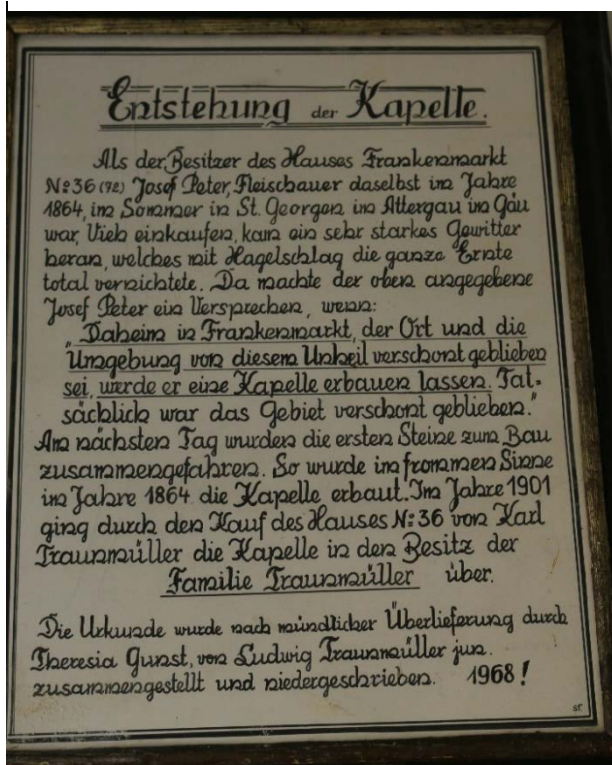 Entstehung der Kapelle.
Als der Besitzer des Hauses Frankenmarkt
No 36 (72) Josef Peter, Fleischauer daselbst im Jahre
1864, im Sommer in St. Georgen im Attergau im Gäu
war, Vieh einkaufen, kam ein sehr starkes Gewitter
heran, welches mit Hagelschlag die ganze Ernte
total vernichtete. Da machte der oben angegebene
Josef Peter ein Versprechen, wenn:
„Daheim in Frankenmarkt, der Ort und die
Umgebung von diesem Unheil verschont geblieben
sei, werde er eine Kapelle erbauen lassen. Tat=
sächlich war das Gebiet verschont geblieben."
Am nächsten Tag wurden die ersten Steine zum Bau
zusammengefahren. So wurde im frommen Sinne
im Jahre 1864 die Kapelle erbaut. Im Jahre 1901
ging durch den Kauf des Hauses No 36 von Karl
Traunmüller die Kapelle in den Besitz der
Familie Traunmüller über.
Die Urkunde wurde nach mündlicher Überlieferung durch
Theresia Gunst, von Ludwig Traunmüller jun.
zusammengestellt und niedergeschrieben. 1968!